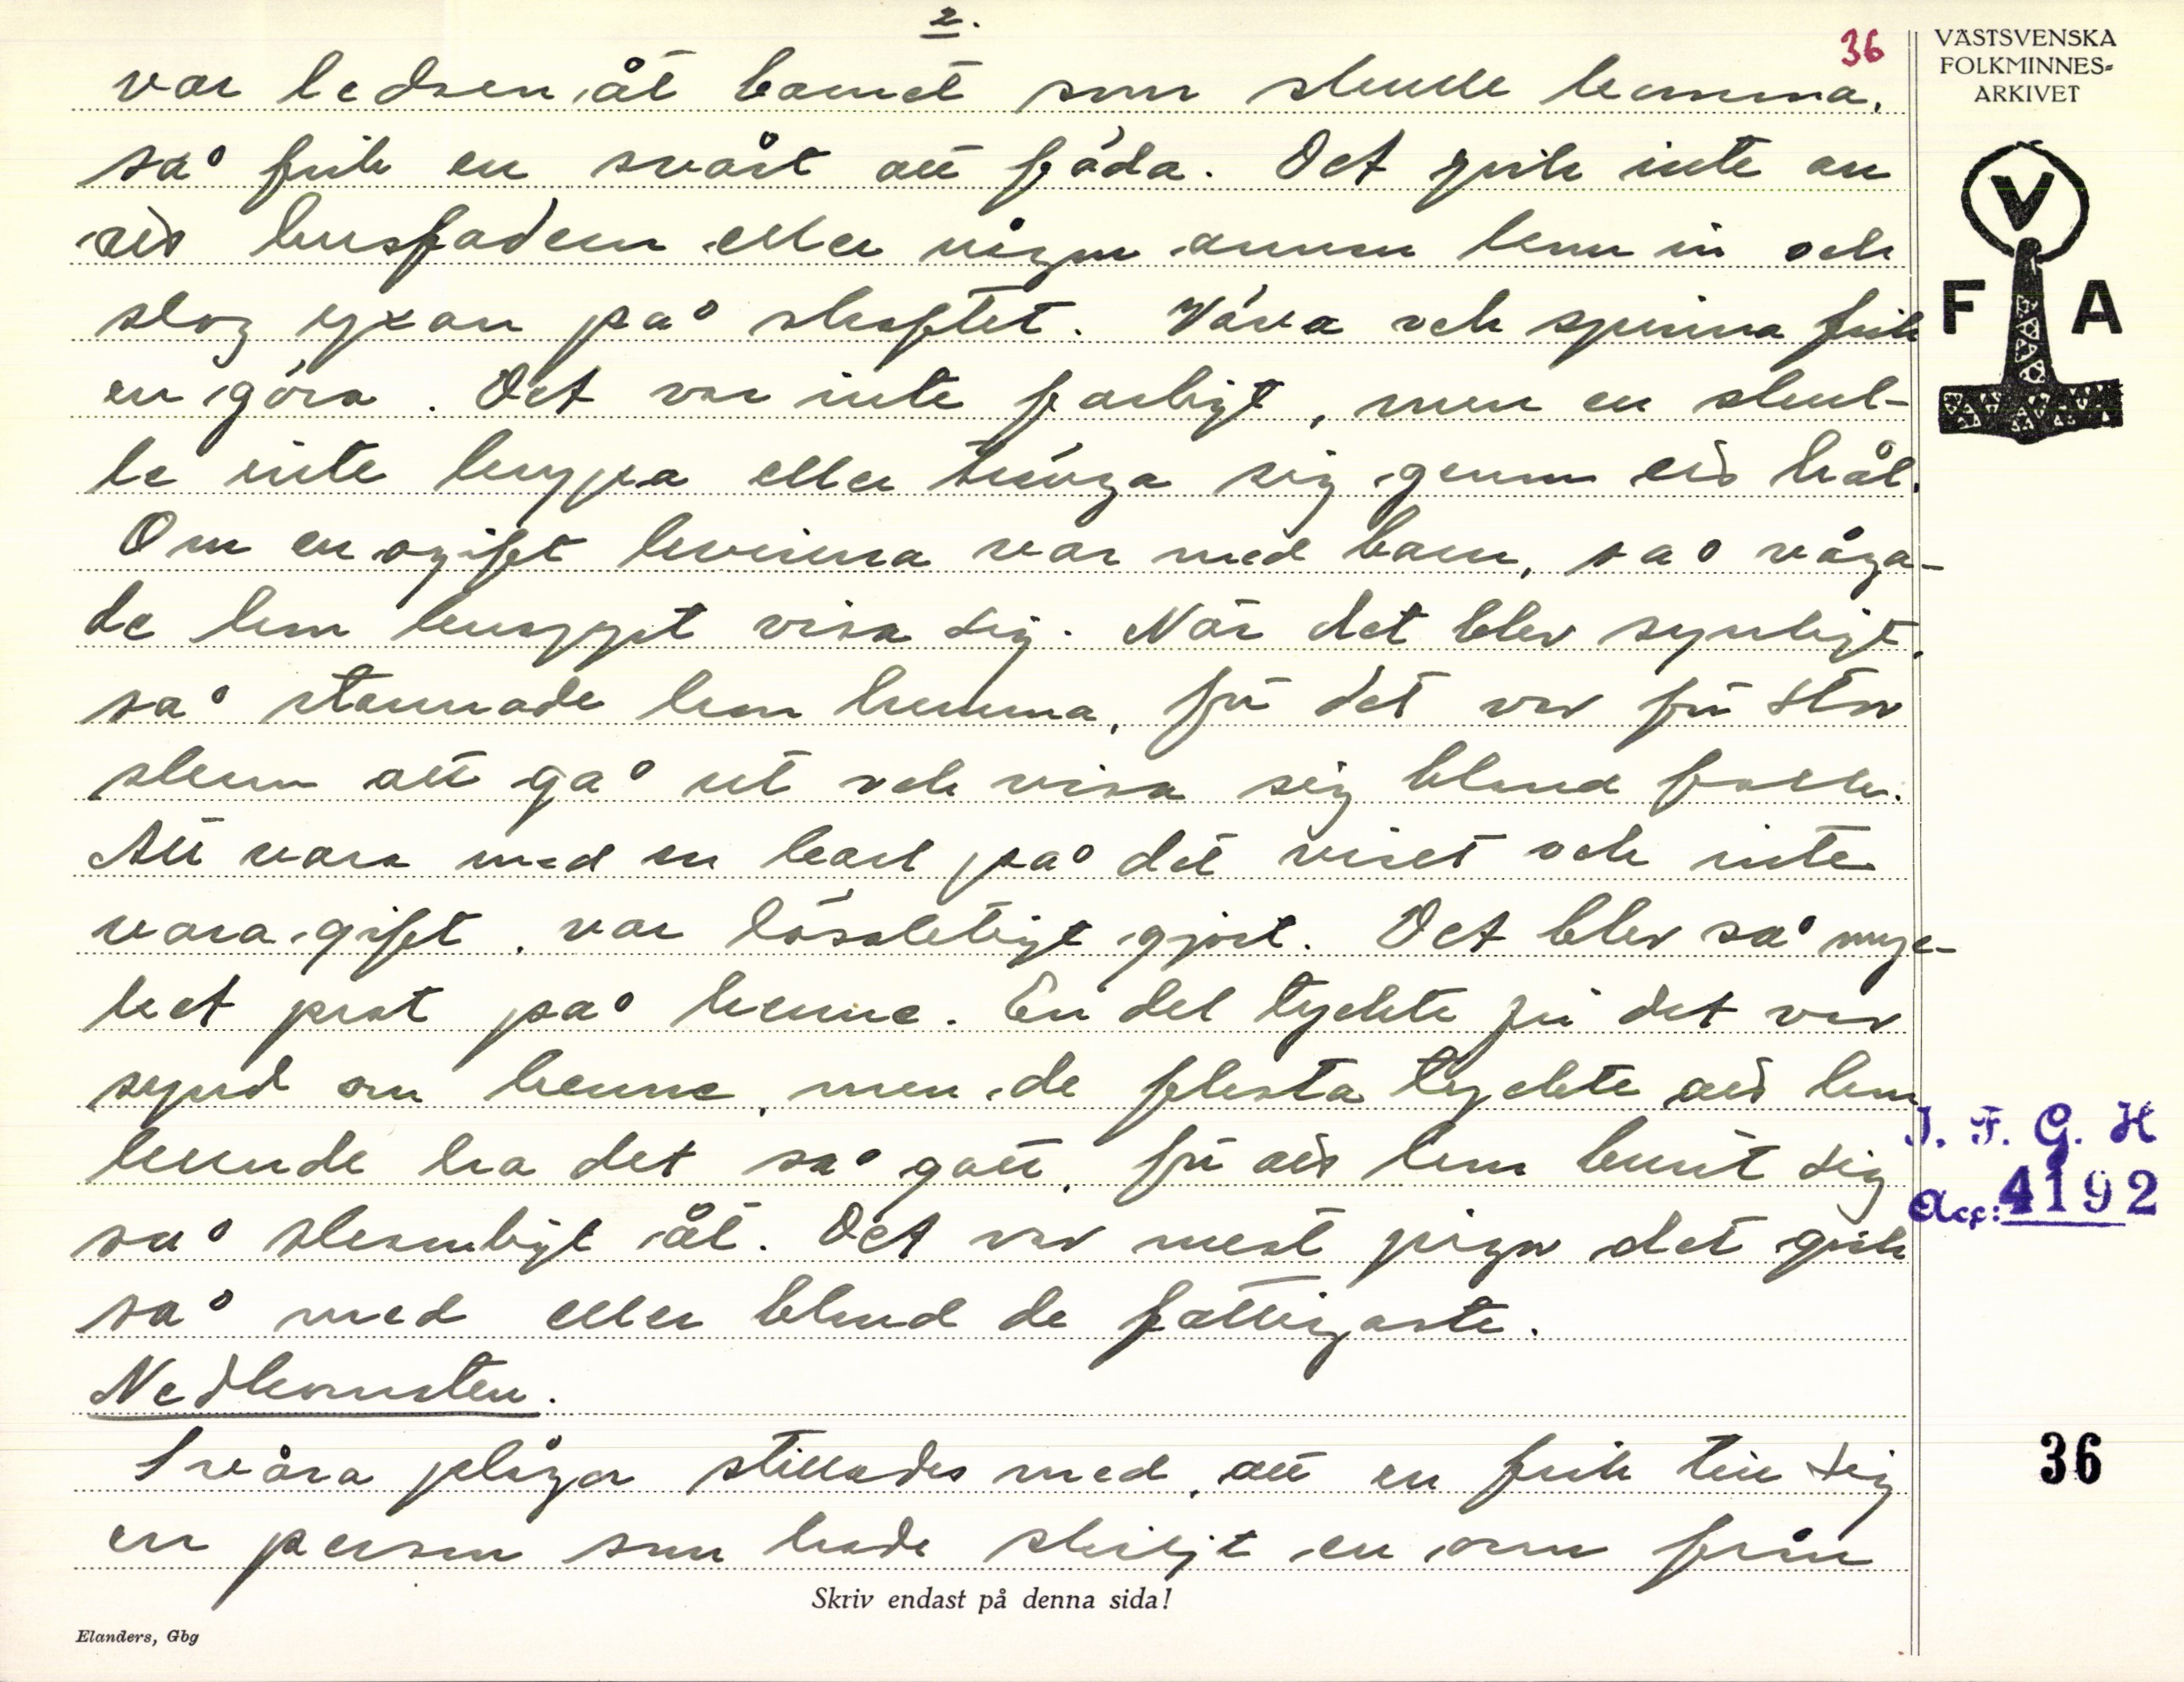 2.
36
VÄSTSVENSKA
FOLKMINNES-
ARKIVET
V
F A
var ledsen åt barnet som skulle komma,
så fick en svårt att föda. Det gick inte an
att husfadern eller någon annan kom in och
slog yxan på skaftet. Väva och spinna fick
en göra. Det var inte farligt, men en skul-
le inte krypa eller tränga sig genom ett hål.
Om en ogift kvinna var med barn, så våga-
de hon knappt visa sig. När det blev synligt,
så stannade hon hemma, för det var för stor
skam att gå ut och visa sig bland folk.
Att vara med en karl på det viset och inte
vara gift, var lösaktigt gjort. Det blev så myc-
ket prat på henne. En del tyckte ju det var
synd om henne, men de flesta tyckte att hon
kunde ha det så gott, för att hon burit sig
så skamligt åt. Det var mest pigor det gick
så med eller bland de fattigaste.
Nedkomsten.
Svåra plågor stillades med, att en fick till sig
en person som hade skiljt en orm från
J. F. G. H
Acc: 4192
36
Skriv endast på denna sida!
Elanders, Gbg